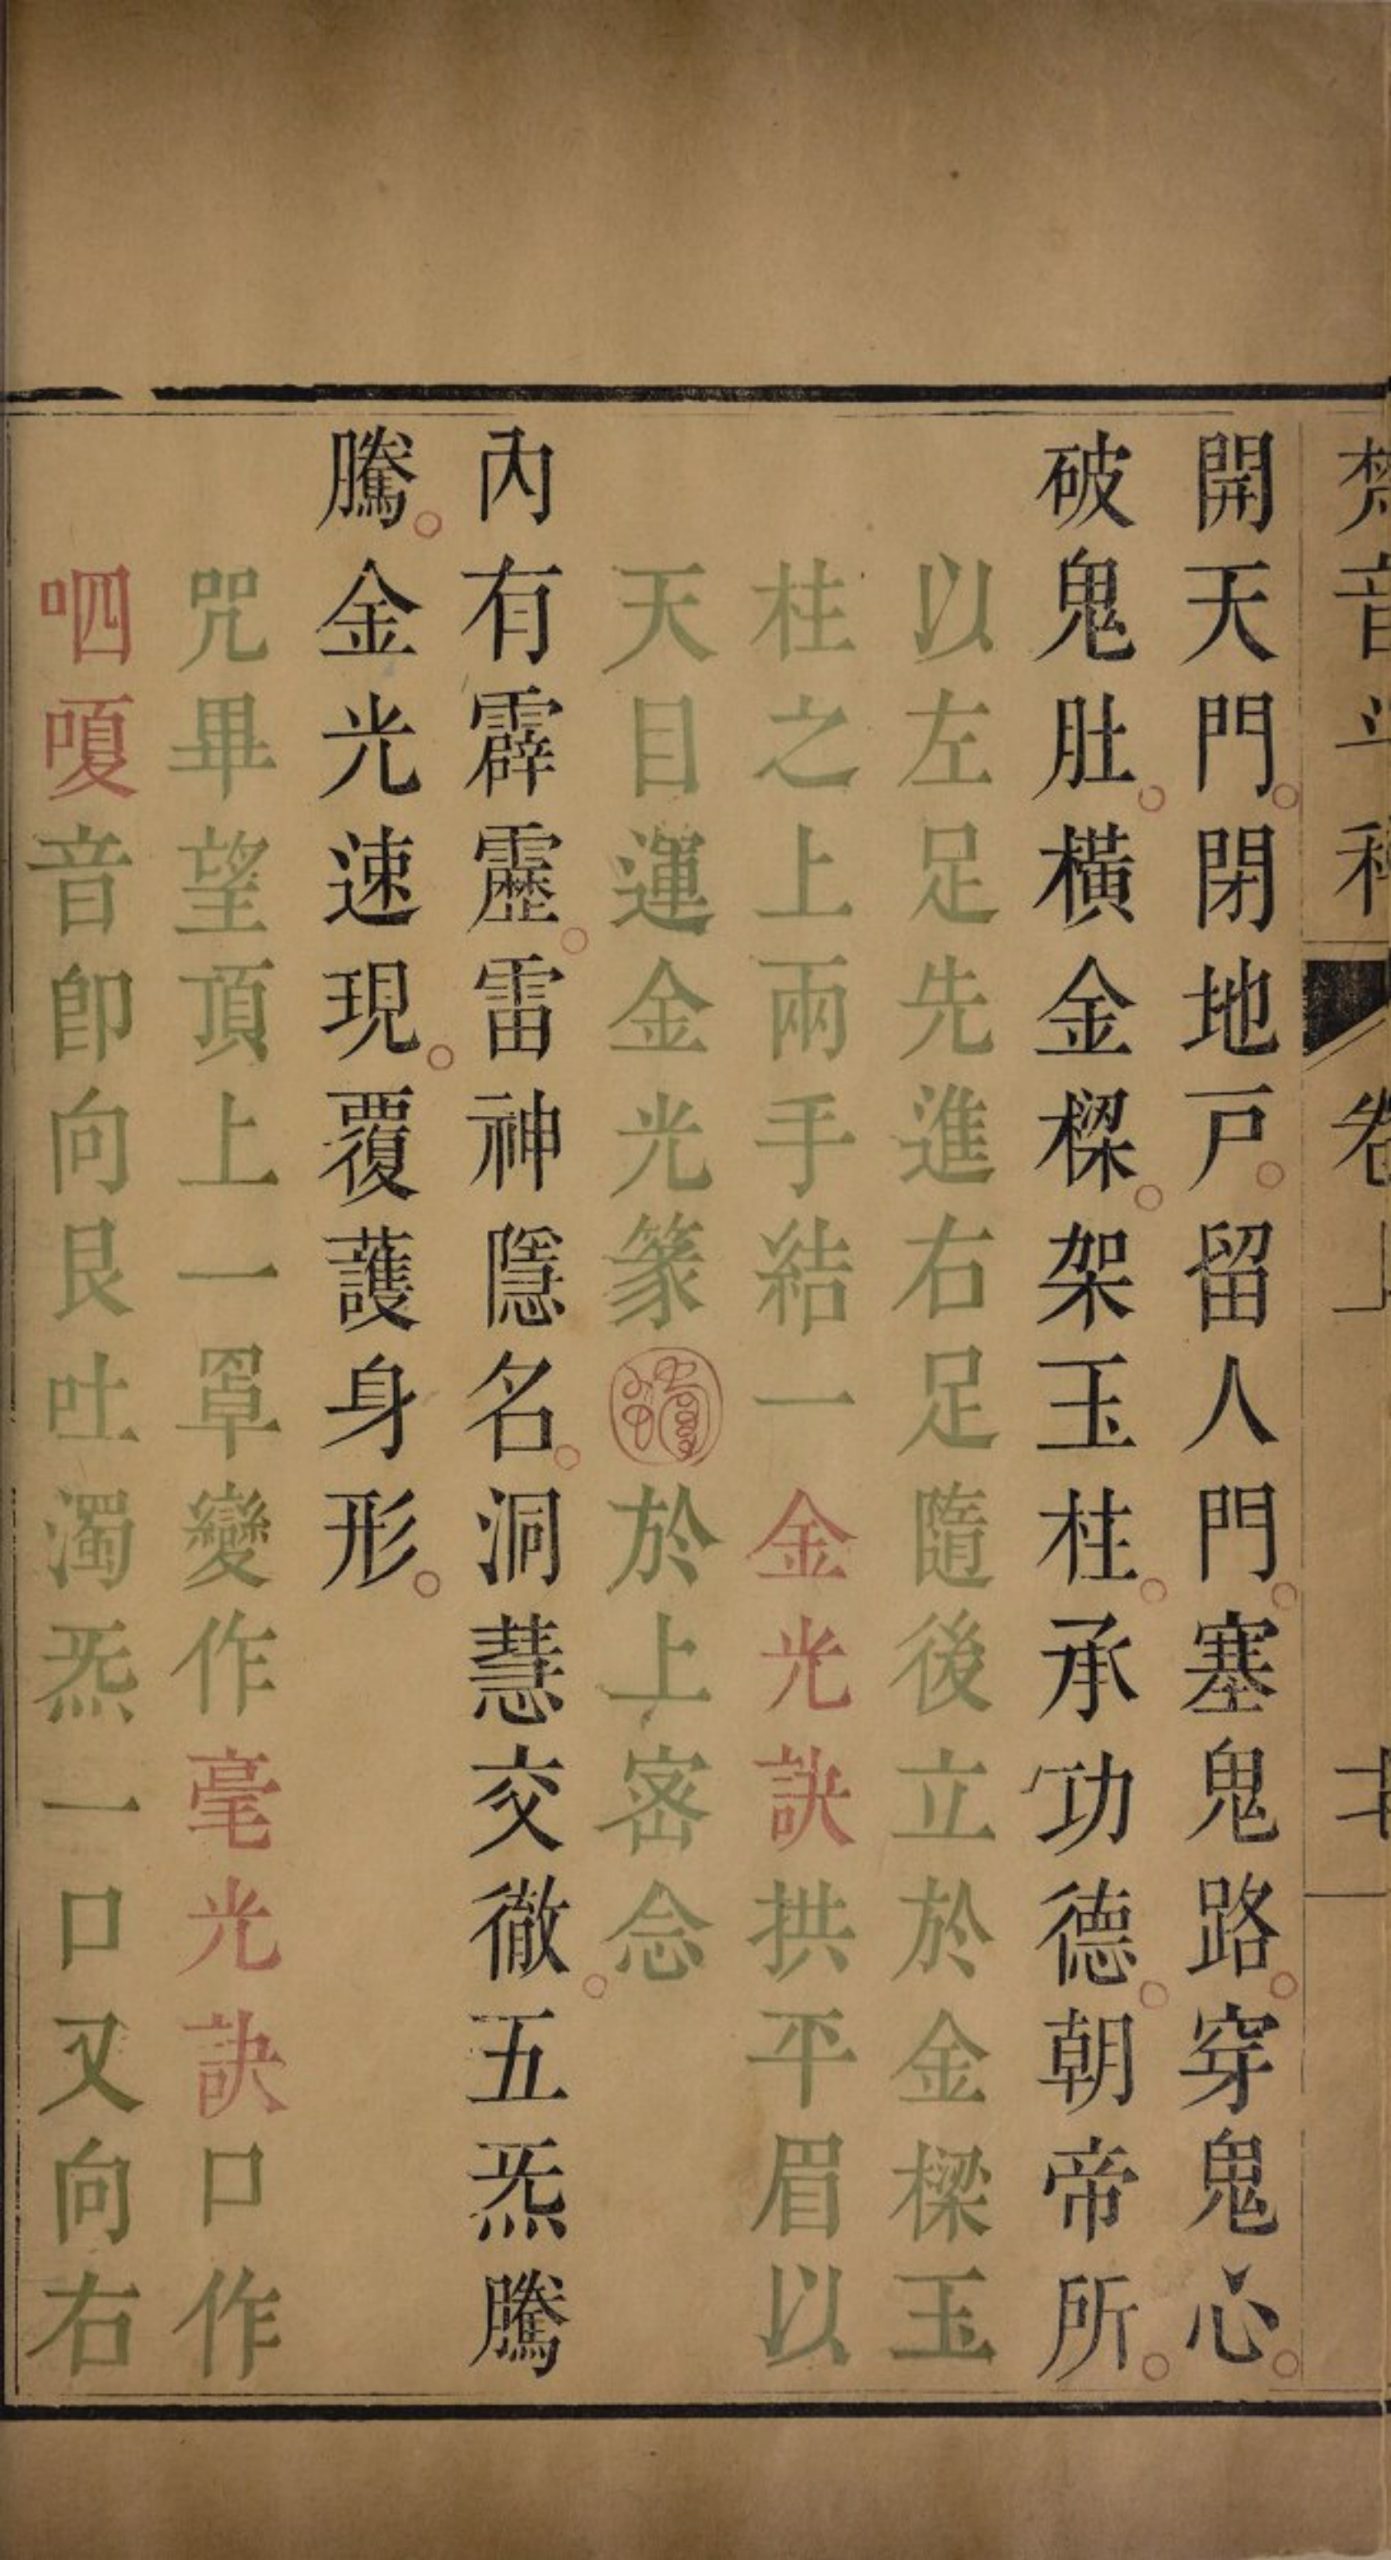 梵音斗科 卷上
開天門。閉地戸。留人門。塞鬼路。穿鬼心。
破鬼肚。橫金樑。架玉柱。承功德。朝帝所。
以左足先進右足隨後立於金樑玉
柱之上兩手結一金光訣拱平眉以
天目運金光篆於上宻念
內有霹靂。雷神隱名。洞慧交徹。五炁騰
騰。金光速現。覆護身形。
咒畢望頂上一罩變作毫光訣口作
呬嗄音卽向艮吐濁炁一口又向右